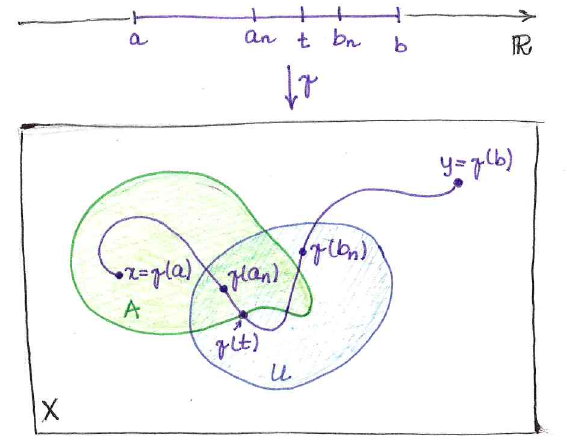 a aₙ t bₙ b ℝ
γ
y=γ(b)
x=γ(a) γ(aₙ) γ(bₙ)
A
γ(t)
U
X